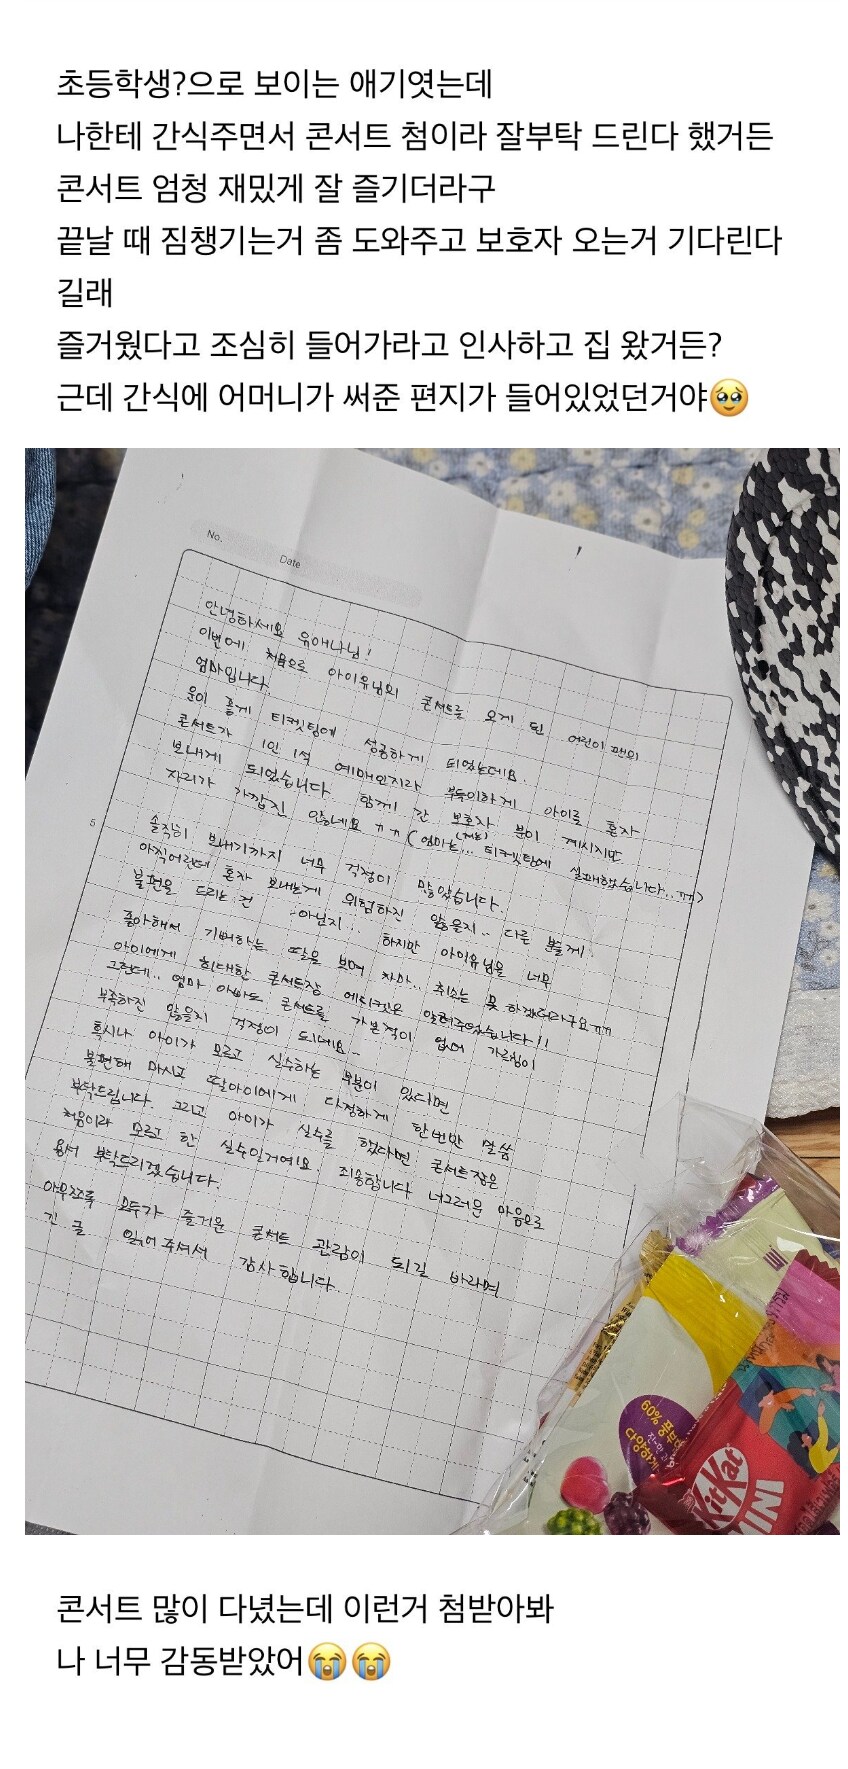 초등학생?으로 보이는 애기엿는데
나한테 간식주면서 콘서트 첨이라 잘부탁 드린다 했거든
콘서트 엄청 재밌게 잘 즐기더라구
끝날 때 짐챙기는거 좀 도와주고 보호자 오는거 기다린다
길래
즐거웠다고 조심히 들어가라고 인사하고 집 왔거든?
근데 간식에 어머니가 써준 편지가 들어있었던거야🥹
No.
Date
안녕하세요 유애나님!
이번에 처음으로 아이유님의 콘서트를 오게 된 어린이 팬의
엄마입니다.
운이 좋게 티켓팅에 성공하게 되었는데요.
콘서트가 1인 1석 예매인지라 부득이하게 아이를 혼자
보내게 되었습니다. 함께 간 보호자 분이 계시지만
자리가 가깝진 않네요 ㅠㅠ (엄마는(저는)... 티켓팅에 실패했습니다..ㅠㅠ)
5
솔직히 보내기까지 너무 걱정이 많았습니다.
아직어린데 혼자 보내는게 위험하진 않을지.. 다른 분들께
불편을 드리는 건 아닌지.. 하지만 아이유님을 너무
좋아해서 기뻐하는 딸을 보며 차마.. 취소는 못 하겠더라구요ㅠㅠ
아이에게 최대한 콘서트장 에티켓은 알려주었습니다!!
그런데.. 엄마 아빠도 콘서트를 가본적이 없어 가르침이
부족하진 않을지 걱정이 되네요..
혹시나 아이가 모르고 실수하는 부분이 있다면
불편해 마시고 딸아이에게 다정하게 한번만 말씀
부탁드립니다. 그리고 아이가 실수를 했다면 콘서트장은
처음이라 모르고 한 실수일거예요 죄송합니다 너그러운 마음으로
용서 부탁드리겠습니다.
아무쪼록 모두가 즐거운 콘서트 관람이 되길 바라며
긴 글 읽어주셔서 감사합니다.
60% 풍부
진~한
다양하게
KitKat
MINI
콘서트 많이 다녔는데 이런거 첨받아봐
나 너무 감동받았어😭😭